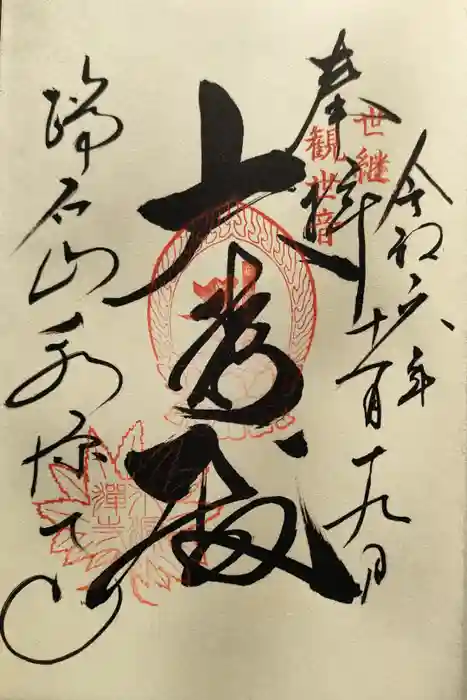 令和六年
十一月十九日
奉拝
世継
観世音
大悲殿
瑞石山永源寺